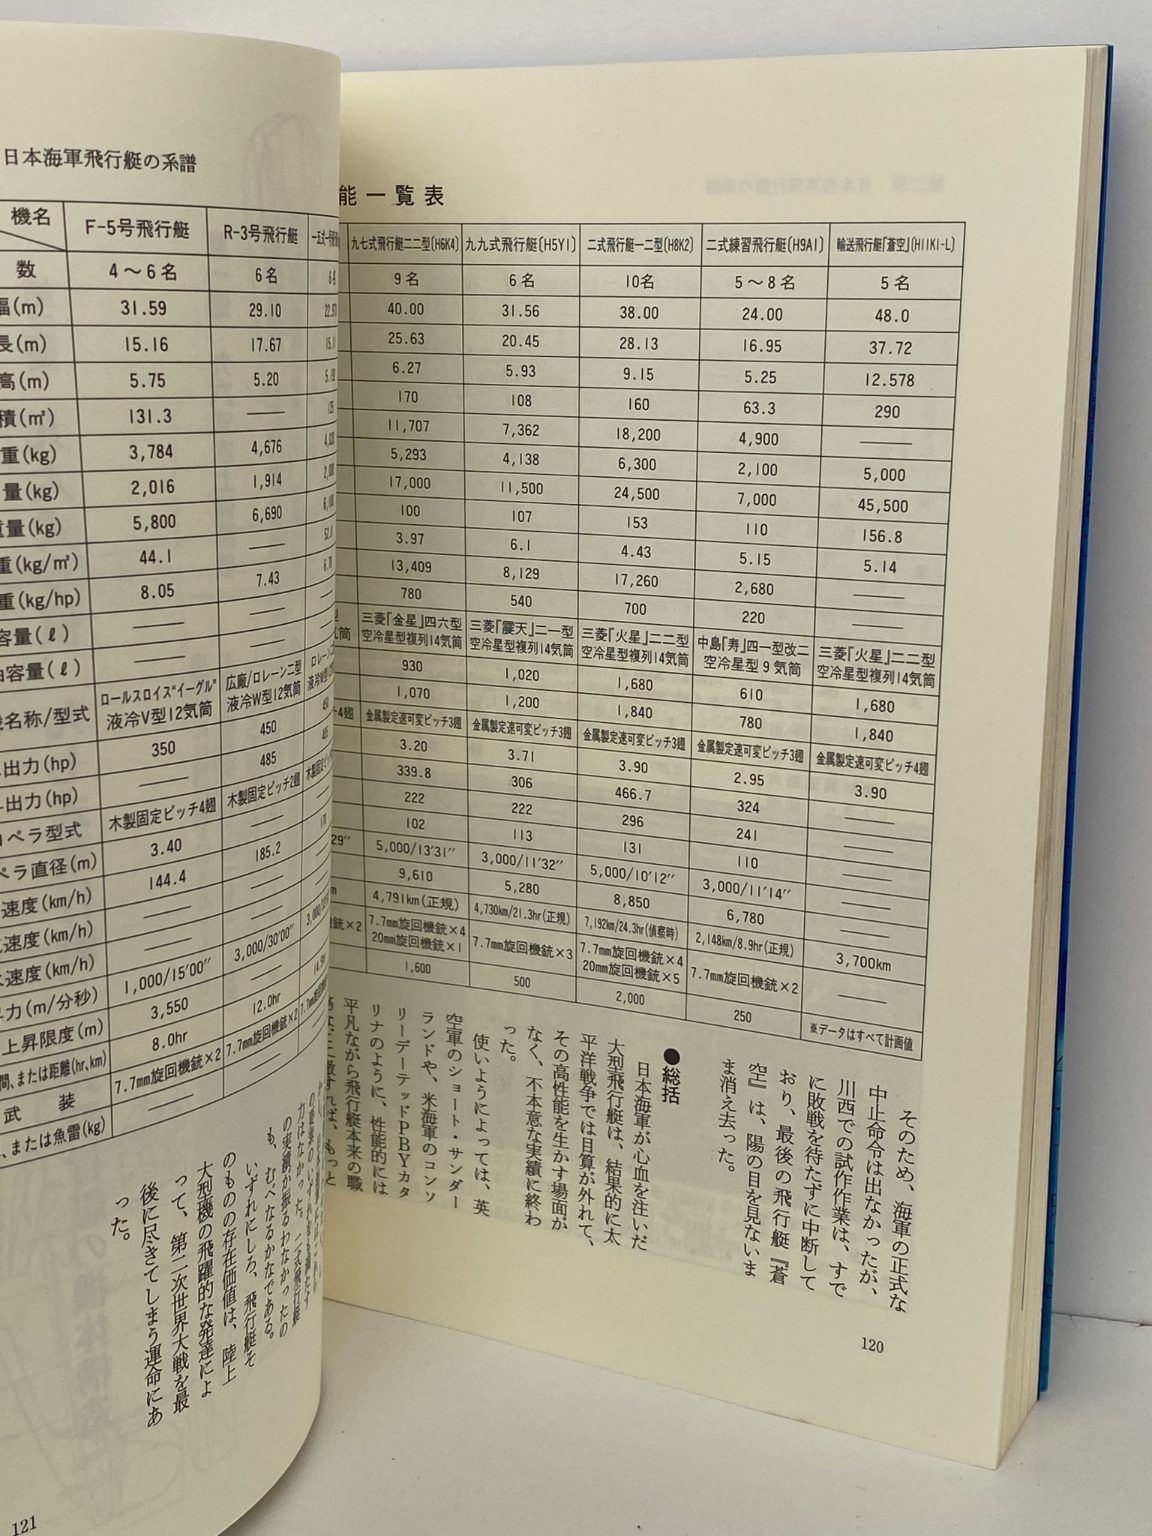 能一覧表
九七式飛行艇二二型(H6K4) 九九式飛行艇(H5Y1) 二式飛行艇一二型(H8K2) 二式練習飛行艇(H9A1) 輸送飛行艇「蒼空」(H11K1-L)
9名 6名 10名 5～8名 5名
40.00 31.56 38.00 24.00 48.0
25.63 20.45 28.13 16.95 37.72
6.27 5.93 9.15 5.25 12.578
170 108 160 63.3 290
11,707 7,362 18,200 4,900 ——
5,293 4,138 6,300 2,100 5,000
17,000 11,500 24,500 7,000 45,500
100 107 153 110 156.8
3.97 6.1 4.43 5.15 5.14
13,409 8,129 17,260 2,680 ——
780 540 700 220 ——
三菱「金星」四六型 三菱「震天」二一型 三菱「火星」二二型 中島「寿」四一型改二 三菱「火星」二二型
空冷星型複列14気筒 空冷星型複列14気筒 空冷星型複列14気筒 空冷星型9気筒 空冷星型複列14気筒
930 1,020 1,680 610 1,680
1,070 1,200 1,840 780 1,840
金属製定速可変ピッチ3翅 金属製定速可変ピッチ3翅 金属製定速可変ピッチ3翅 金属製定速可変ピッチ3翅 金属製定速可変ピッチ4翅
3.20 3.71 3.90 2.95 3.90
339.8 306 466.7 324 ——
222 222 296 241 ——
102 113 131 110 ——
5,000/13′31″ 3,000/11′32″ 5,000/10′12″ 3,000/11′14″ ——
9,610 5,280 8,850 6,780 ——
4,791km(正規) 4,730km/21.3hr(正規) 7,192km/24.3hr(偵察時) 2,148km/8.9hr(正規) 3,700km
7.7㎜旋回機銃×4 7.7㎜旋回機銃×3 7.7㎜旋回機銃×4 7.7㎜旋回機銃×2 ——
20㎜旋回機銃×1 20㎜旋回機銃×5
1,600 500 2,000 250 ※データはすべて計画値
そのため、海軍の正式な
中止命令は出なかったが、
川西での試作作業は、すで
に敗戦を待たずに中断して
おり、最後の飛行艇『蒼
空』は、陽の目を見ないま
ま消え去った。
●総括
日本海軍が心血を注いだ
大型飛行艇は、結果的に太
平洋戦争では目算が外れて、
その高性能を生かす場面が
なく、不本意な実績に終わ
った。
使いようによっては、英
空軍のショート・サンダー
ランドや、米海軍のコンソ
リーデーテッドPBYカタ
リナのように、性能的には
平凡ながら飛行艇本来の職
120
日本海軍飛行艇の系譜
機名 F-5号飛行艇 R-3号飛行艇
数 4～6名 6名
幅(m) 31.59 29.10
長(m) 15.16 17.67
高(m) 5.75 5.20
積(㎡) 131.3 ——
重(kg) 3,784 4,676
量(kg) 2,016 1,914
重量(kg) 5,800 6,690
重(kg/㎡) 44.1 ——
重(kg/hp) 8.05 7.43
容量(ℓ) —— ——
油容量(ℓ) —— ——
機名称/型式 ロールスロイス"イーグル" 広廠/ローレーン二型
液冷V型12気筒 液冷W型12気筒
出力(hp) 350 450
出力(hp) —— 485
ロペラ型式 木製固定ピッチ4翅 木製固定ピッチ2翅
ペラ直径(m) 3.40 ——
速度(km/h) 144.4 185.2
速度(km/h) —— ——
速度(km/h) —— ——
力(m/分秒) 1,000/15′00″ 3,000/30′00″
上昇限度(m) 3,550 ——
間、または距離(hr、km) 8.0hr 12.0hr
武装 7.7㎜旋回機銃×2 7.7㎜旋回機銃×2
、または魚雷(kg) ——
力はなかった。二式飛行艇
の実績が振るわなかったの
も、むべなるかなである。
いずれにしろ、飛行艇そ
のものの存在価値は、陸上
大型機の飛躍的な発達によ
って、第二次世界大戦を最
後に尽きてしまう運命にあ
った。
121